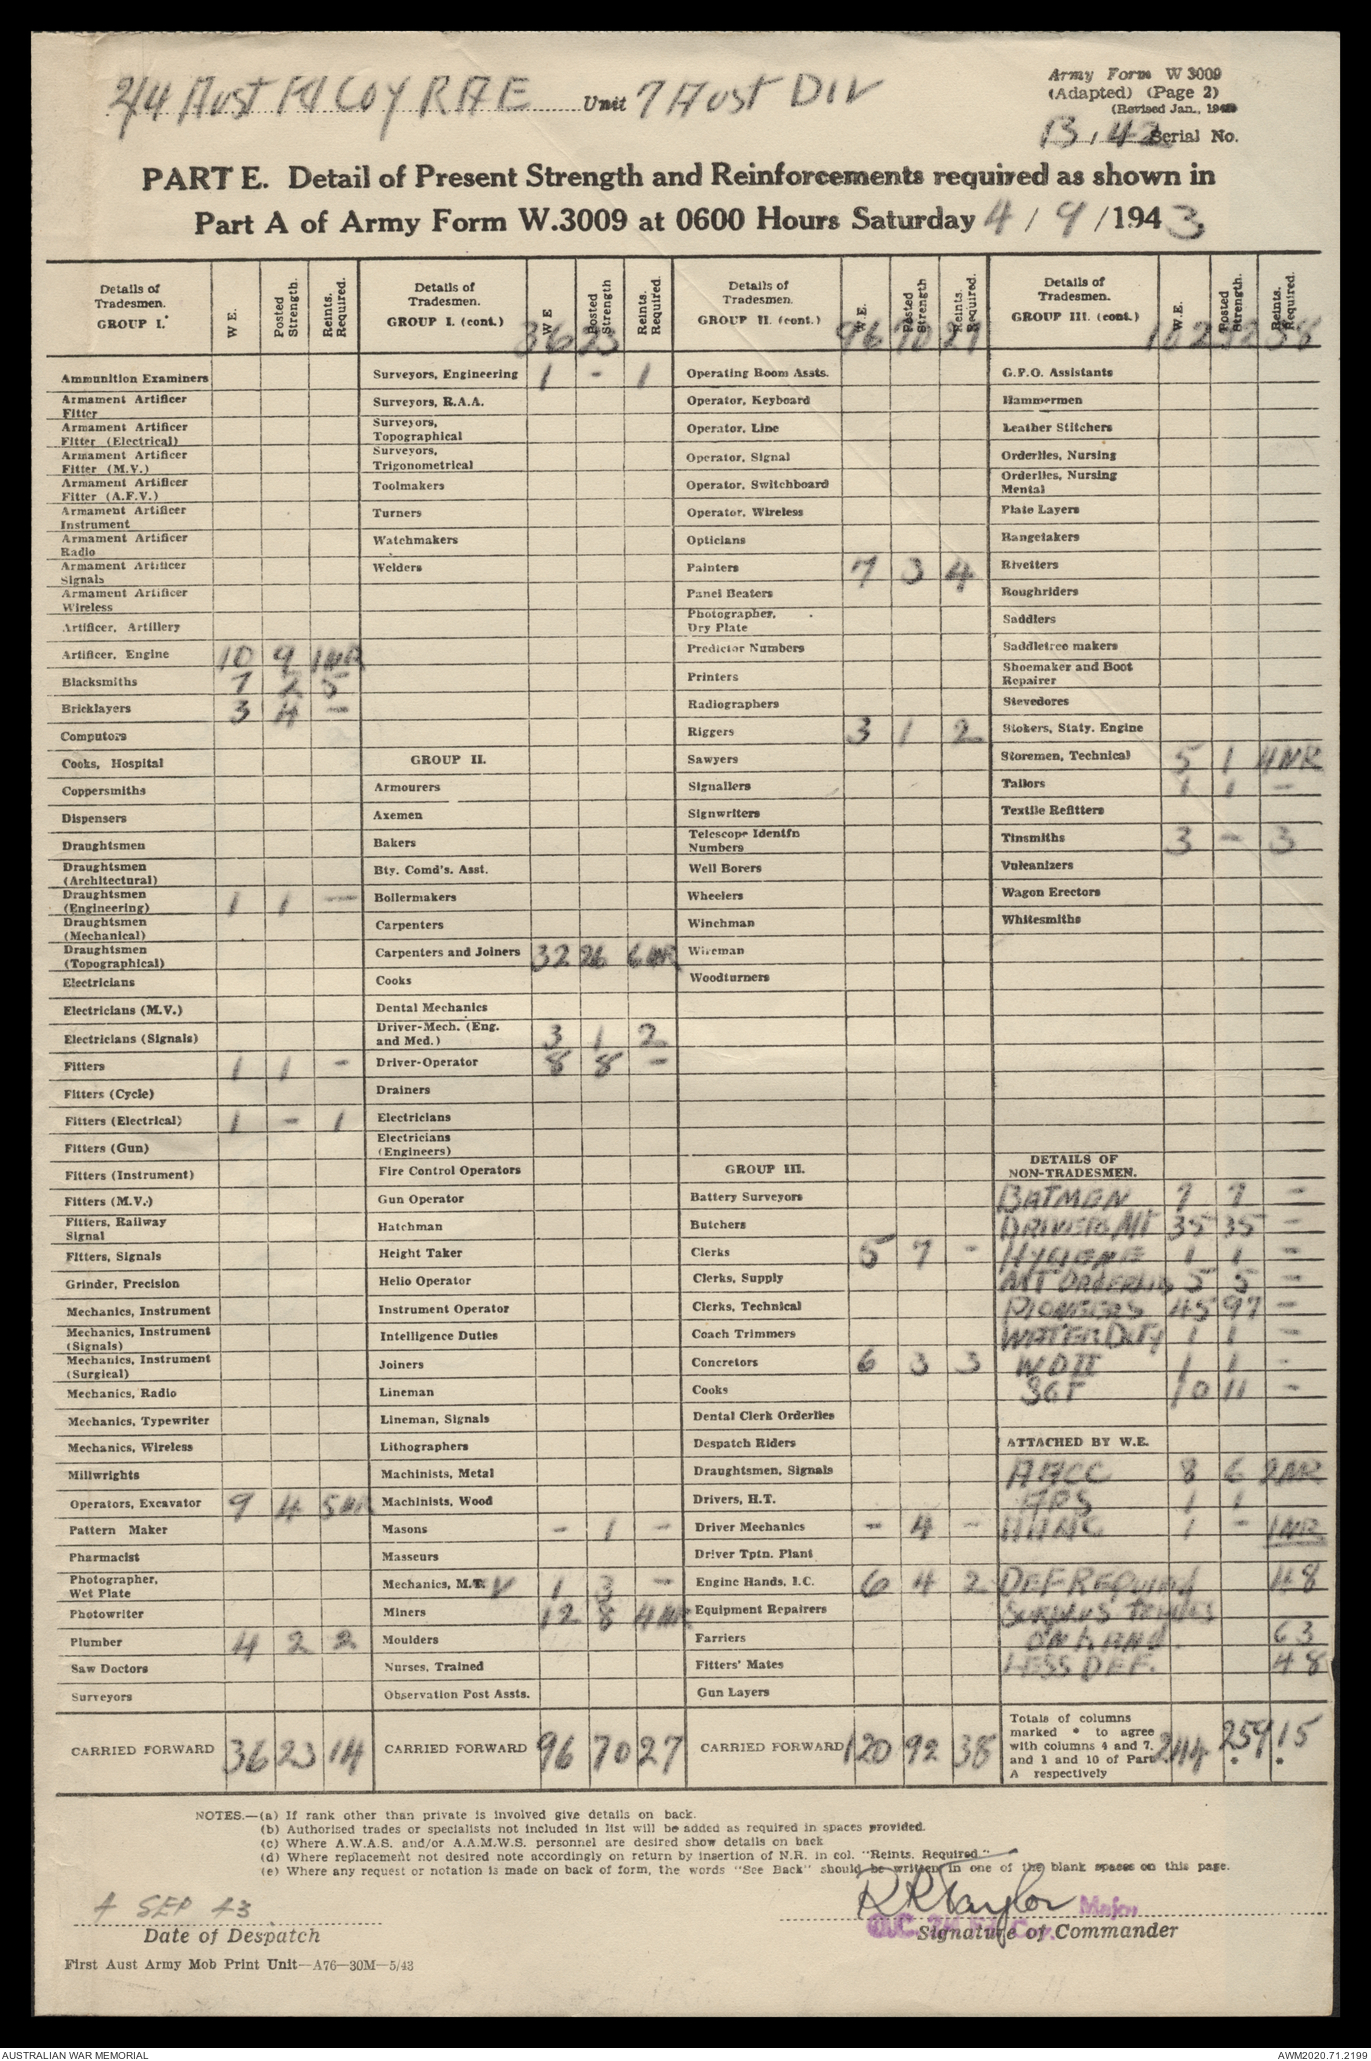 2/4 Aust Fd Coy RAE Unit 7 Aust DIV
Army Form W 3009
(Adapted) (Page 2)
(Revised Jan., 194
B, 42 Serial No.
PART E. Detail of Present Strength and Reinforcements required as shown in
Part A of Army Form W.3009 at 0600 Hours Saturday 4 / 9 / 1943
Details of Tradesmen. GROUP I. W E. Posted Strength. Reints. Required.
Ammunition Examiners
Armament Artificer Fitter
Armament Artificer Fitter (Electrical)
Armament Artificer Fitter (M.V.)
Armament Artificer Fitter (A.F.V.)
Armament Artificer Instrument
Armament Artificer Radio
Armament Artificer Signals
Armament Artificer Wireless
Artificer, Artillery
Artificer, Engine 10 9 1NR
Blacksmiths 7 2 5
Bricklayers 3 4 -
Computors
Cooks, Hospital
Coppersmiths
Dispensers
Draughtsmen
Draughtsmen (Architectural)
Draughtsmen (Engineering) 1 1 -
Draughtsmen (Mechanical)
Draughtsmen (Topographical)
Electricians
Electricians (M.V.)
Electricians (Signals)
Fitters 1 1 -
Fitters (Cycle)
Fitters (Electrical) 1 - 1
Fitters (Gun)
Fitters (Instrument)
Fitters (M.V.)
Fitters, Railway Signal
Fitters, Signals
Grinder, Precision
Mechanics, Instrument
Mechanics, Instrument (Signals)
Mechanics, Instrument (Surgical)
Mechanics, Radio
Mechanics, Typewriter
Mechanics, Wireless
Millwrights
Operators, Excavator 9 4 5NR
Pattern Maker
Pharmacist
Photographer, Wet Plate
Photowriter
Plumber 4 2 2
Saw Doctors
Surveyors
CARRIED FORWARD 36 23 14
Details of Tradesmen. GROUP I. (cont.) W E Posted Strength Reints. Required.
36 23
Surveyors, Engineering 1 - 1
Surveyors, R.A.A.
Surveyors, Topographical
Surveyors, Trigonometrical
Toolmakers
Turners
Watchmakers
Welders
GROUP II.
Armourers
Axemen
Bakers
Bty. Comd's. Asst.
Boilermakers
Carpenters
Carpenters and Joiners 32 26 6NR
Cooks
Dental Mechanics
Driver-Mech. (Eng. and Med.) 3 1 2
Driver-Operator 8 8 -
Drainers
Electricians
Electricians (Engineers)
Fire Control Operators
Gun Operator
Hatchman
Height Taker
Helio Operator
Instrument Operator
Intelligence Duties
Joiners
Lineman
Lineman, Signals
Lithographers
Machinists, Metal
Machinists, Wood
Masons - 1 -
Masseurs
Mechanics, M.V 1 3 -
Miners 12 8 4NR
Moulders
Nurses, Trained
Observation Post Assts.
CARRIED FORWARD 96 70 27
Details of Tradesmen. GROUP II. (cont.) W.E. Posted Strength Reints. Required.
96 70 27
Operating Room Assts.
Operator, Keyboard
Operator, Line
Operator, Signal
Operator, Switchboard
Operator, Wireless
Opticians
Painters 7 3 4
Panel Beaters
Photographer, Dry Plate
Predictor Numbers
Printers
Radiographers
Riggers 3 1 2
Sawyers
Signallers
Signwriters
Telescope Identfn Numbers
Well Borers
Wheelers
Winchman
Wireman
Woodturners
GROUP III.
Battery Surveyors
Butchers
Clerks 5 7 -
Clerks, Supply
Clerks, Technical
Coach Trimmers
Concretors 6 3 3
Cooks
Dental Clerk Orderlies
Despatch Riders
Draughtsmen, Signals
Drivers, H.T.
Driver Mechanics - 4 -
Driver Tptn. Plant
Engine Hands, I.C. 6 4 2
Equipment Repairers
Farriers
Fitters' Mates
Gun Layers
CARRIED FORWARD 120 92 38
Details of Tradesmen. GROUP III. (cont.) W.E. Posted Strength. Reints. Required.
102 92 38
G.P.O. Assistants
Hammermen
Leather Stitchers
Orderlies, Nursing
Orderlies, Nursing Mental
Plate Layers
Rangetakers
Rivetters
Roughriders
Saddlers
Saddletree makers
Shoemaker and Boot Repairer
Stevedores
Stokers, Staty. Engine
Storemen, Technical 5 1 4NR
Tailors 1 1 -
Textile Refitters
Tinsmiths 3 - 3
Vulcanizers
Wagon Erectors
Whitesmiths
DETAILS OF NON-TRADESMEN.
BATMEN 7 7 -
DRIVERS MT 35 35 -
HYGIENE 1 1 -
MT ORDERLIES 5 5 -
PIONEERS 45 97 -
WATER DUTY 1 1 -
WO II 1 1 -
SGT 10 11 -
ATTACHED BY W.E.
AACC 8 6 2NR
APS 1 1
AAMC 1 - 1NR
DEF REQUIRED 48
SURPLUS TRADES
ON HAND. 63
LESS DEF. 48
Totals of columns marked * to agree with columns 4 and 7. and 1 and 10 of Part A respectively 244 259 15
NOTES.—(a) If rank other than private is involved give details on back.
(b) Authorised trades or specialists not included in list will be added as required in spaces provided.
(c) Where A.W.A.S. and/or A.A.M.W.S. personnel are desired show details on back
(d) Where replacement not desired note accordingly on return by insertion of N.R. in col. "Reints. Required."
(e) Where any request or notation is made on back of form, the words "See Back" should be written in one of the blank spaces on this page.
4 SEP 43
Date of Despatch
RRTaylor Major
O.C. 2/4 Fd. Coy.
Signature of Commander
First Aust Army Mob Print Unit—A76—30M—5/43
AUSTRALIAN WAR MEMORIAL
AWM2020.71.2199